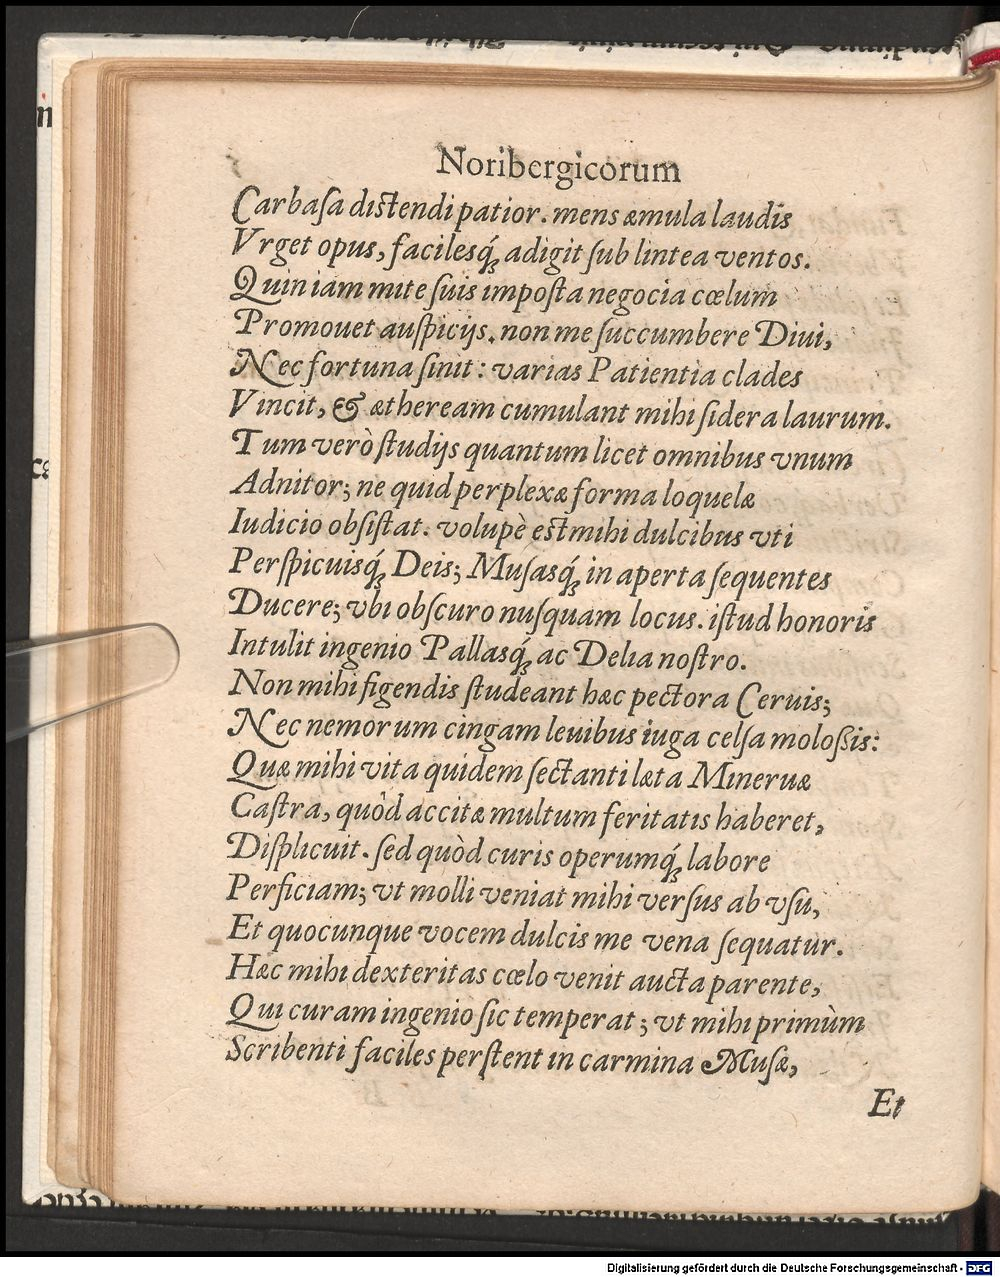 Noribergicorum
Carbaſa diſtendi patior. mens æmula laudis
Vrget opus, facilesq́; adigit ſub lintea ventos.
Quin iam mite ſuis impoſta negocia cœlum
Promouet auſpicijs. non me ſuccumbere Diui,
Nec fortuna ſinit: varias Patientia clades
Vincit, & ætheream cumulant mihi ſidera laurum.
Tum verò ſtudijs quantum licet omnibus vnum
Adnitor; ne quid perplexæ forma loquelæ
Iudicio obſiſtat. volupè eſt mihi dulcibus vti
Perſpicuisq́; Deis; Muſasq́; in aperta ſequentes
Ducere; vbi obſcuro nuſquam locus. iſtud honoris
Intulit ingenio Pallasq́; ac Delia noſtro.
Non mihi figendis ſtudeant hæc pectora Ceruis;
Nec nemorum cingam leuibus iuga celſa moloßis:
Quæ mihi vita quidem ſectanti læta Mineruæ
Caſtra, quòd accitæ multum feritatis haberet,
Diſplicuit. ſed quòd curis operumq́; labore
Perficiam; vt molli veniat mihi verſus ab vſu,
Et quocunque vocem dulcis me vena ſequatur.
Hæc mihi dexteritas cœlo venit aucta parente,
Qui curam ingenio ſic temperat; vt mihi primùm
Scribenti faciles perſtent in carmina Muſæ,
Et
Digitalisierung gefördert durch die Deutsche Forschungsgemeinschaft - DFG